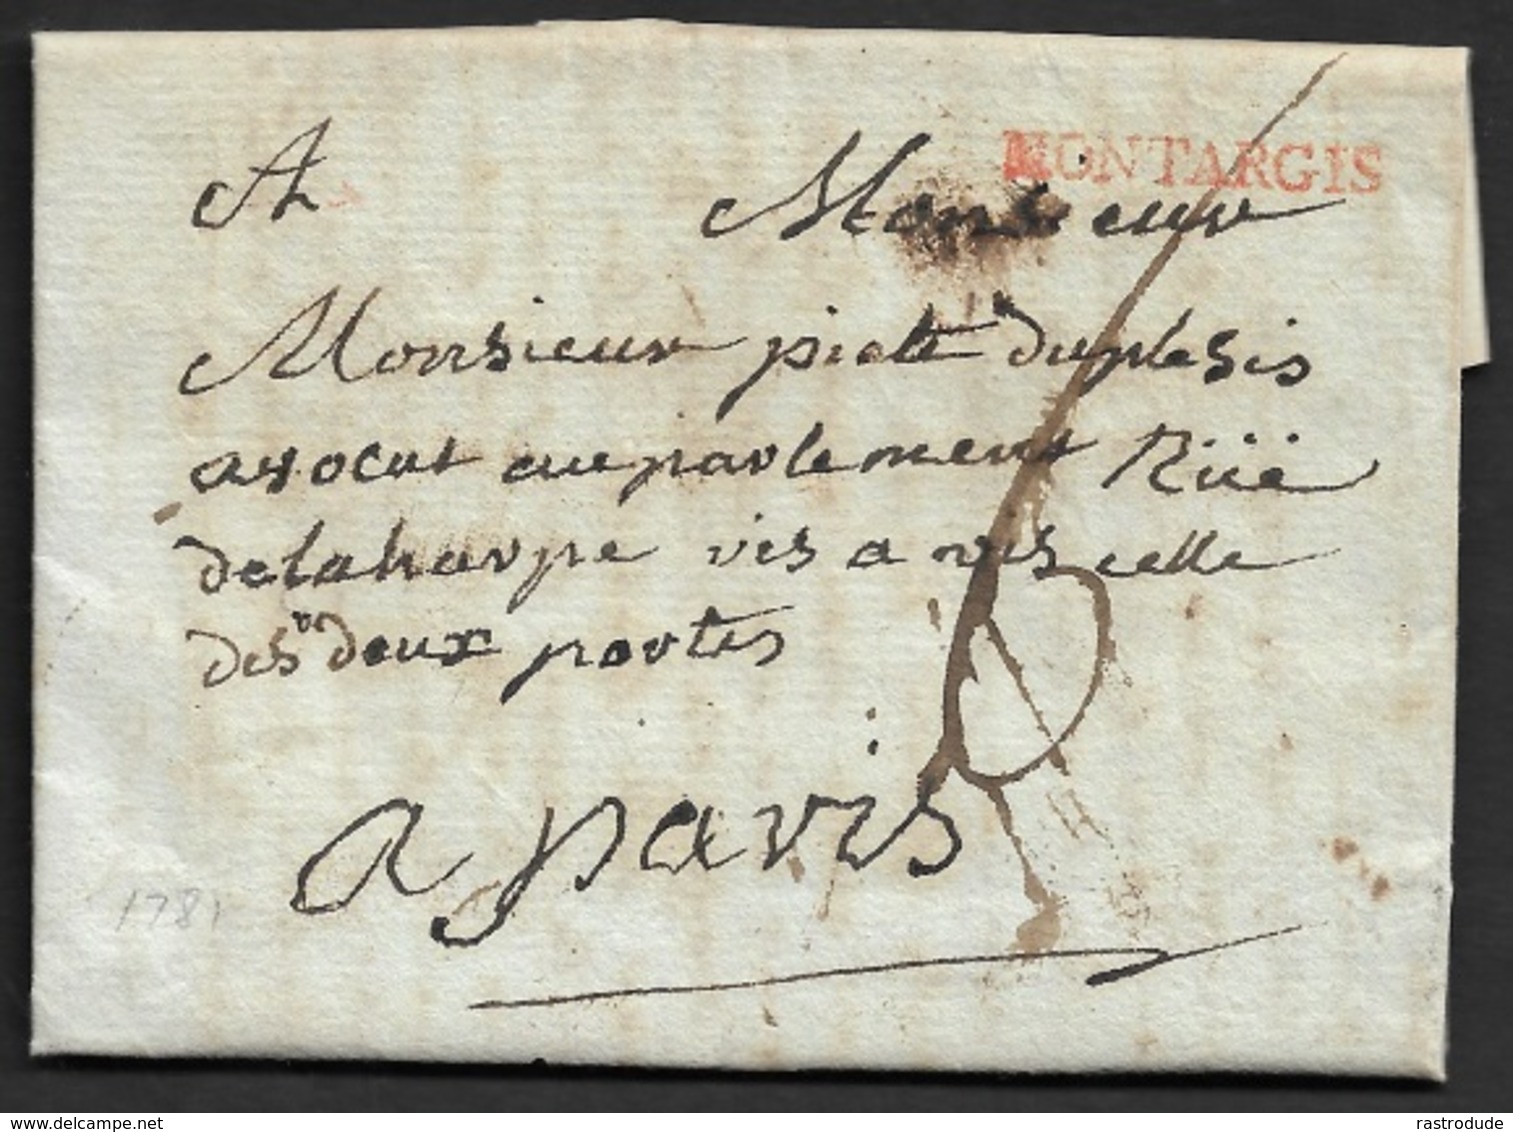 MONTARGIS
A Monsieur
Monsieur piett duplesis
avocat au parlement Rüe
delaharpe vis a vis celle
des deux portes
a paris
6
1781
www.delcampe.net
rastrodude